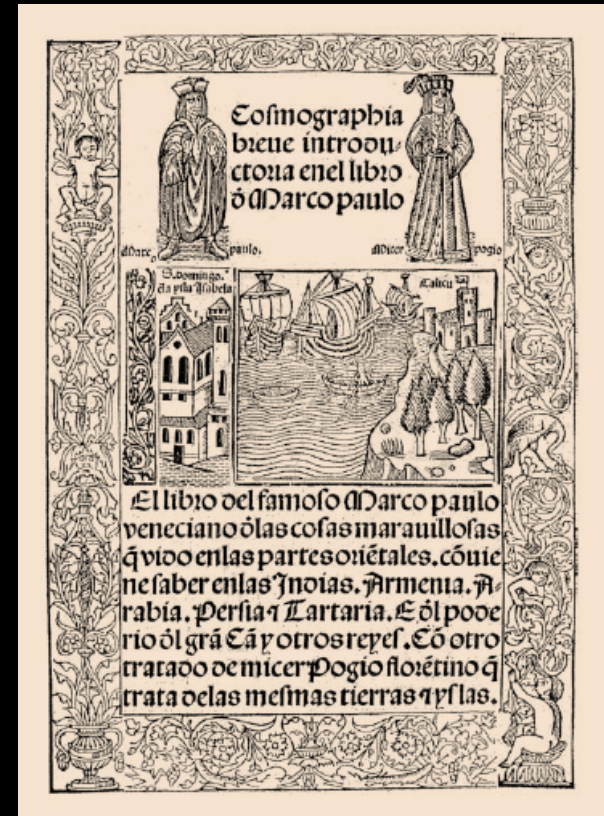 Cosmographia
breue introdu-
ctoria enel libro
d̄ Marco paulo
Marc
o
paulo.
Micer
pogio
S. domingo.
ēla ysla Isabela
Calicu
El libro del famoso Marco paulo
veneciano d̄las cosas marauillosas
q̄ vido enlas partes oriētales. cōuie
ne saber enlas Indias. Armenia. A-
rabia. Persia ⁊ Tartaria. E d̄l pode
rio d̄l grā Cā y otros reyes. Cō otro
tratado de micer Pogio florētino q̄
trata delas mesmas tierras ⁊ yslas.